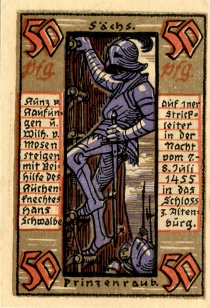 50 Sächs. 50
Pfg. Pfg.
Kunz v.
Kaufun=
gen u.
Wilh. v.
Mosen
steigen
mit Bei=
hilfe des
Küchen=
knechtes
Hans
Schwalbe
auf 1ner
Strick=
leiter
in der
Nacht
vom 7.-
8. Juli
1455
in das
Schloss
z. Alten=
burg.
50 Prinzenraub. 50